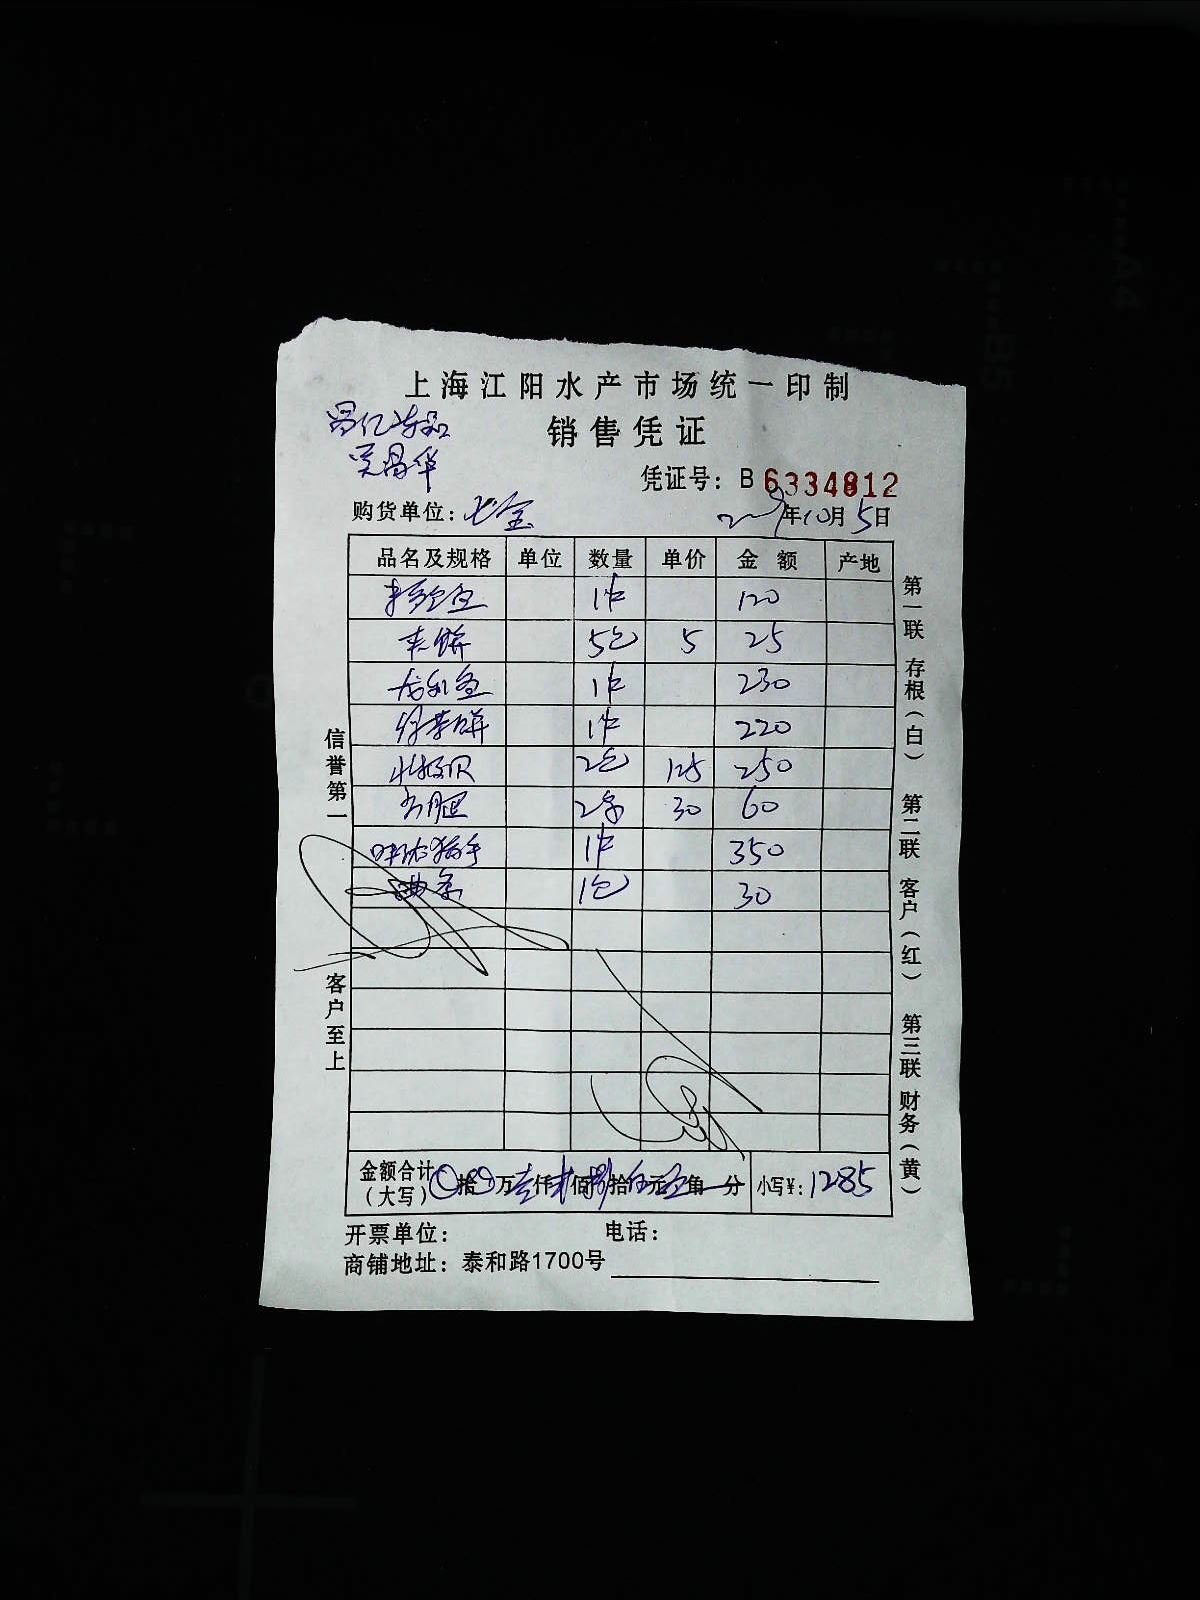 上海江阳水产市场统一印制
销售凭证
吴昌华
凭证号：B 6334812
购货单位：七宝
年10月5日
品名及规格 单位 数量 单价 金额 产地
1件 120
夹饼 5包 5 25
龙利鱼 1件 230
1件 220
北极贝 2包 125 250
2条 30 60
1件 350
1包 30
信誉第一 客户至上
第一联 存根（白） 第二联 客户（红） 第三联 财务（黄）
金额合计（大写） 拾 万壹仟 佰捌拾伍元 角 分 小写¥：1285
开票单位： 电话：
商铺地址：泰和路1700号